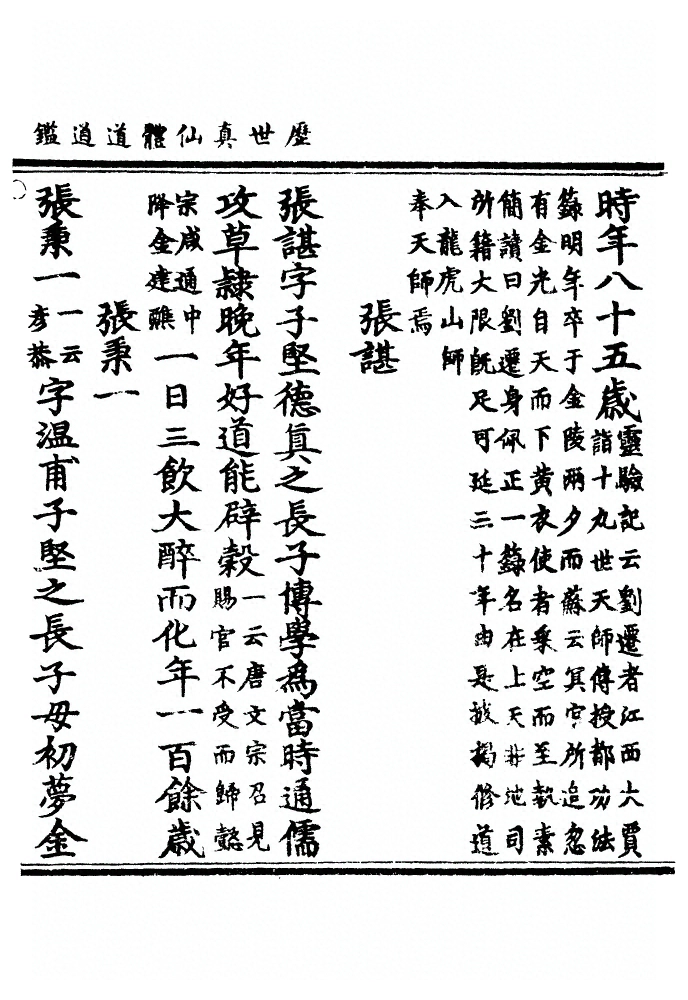 歷世真仙體道通鑑
時年八十五歲靈驗記云劉遷者江西大賈
詣十九世天師傳授都功法
籙明年卒于金陵兩夕而蘇云冥官所追忽
有金光自天而下黃衣使者乘空而至執素
簡讀曰劉遷身佩正一籙名在上天井地司
所籍大限既足可延三十年由是披揭修道
入龍虎山師
奉天師焉
張諶
張諶字子堅德真之長子博學為當時通儒
攻草隸晚年好道能辟穀一云唐文宗召見
賜官不受而歸懿
宗咸通中
降金建醮一日三飲大醉而化年一百餘歲
張秉一
張秉一一云
彥恭字溫甫子堅之長子母初夢金